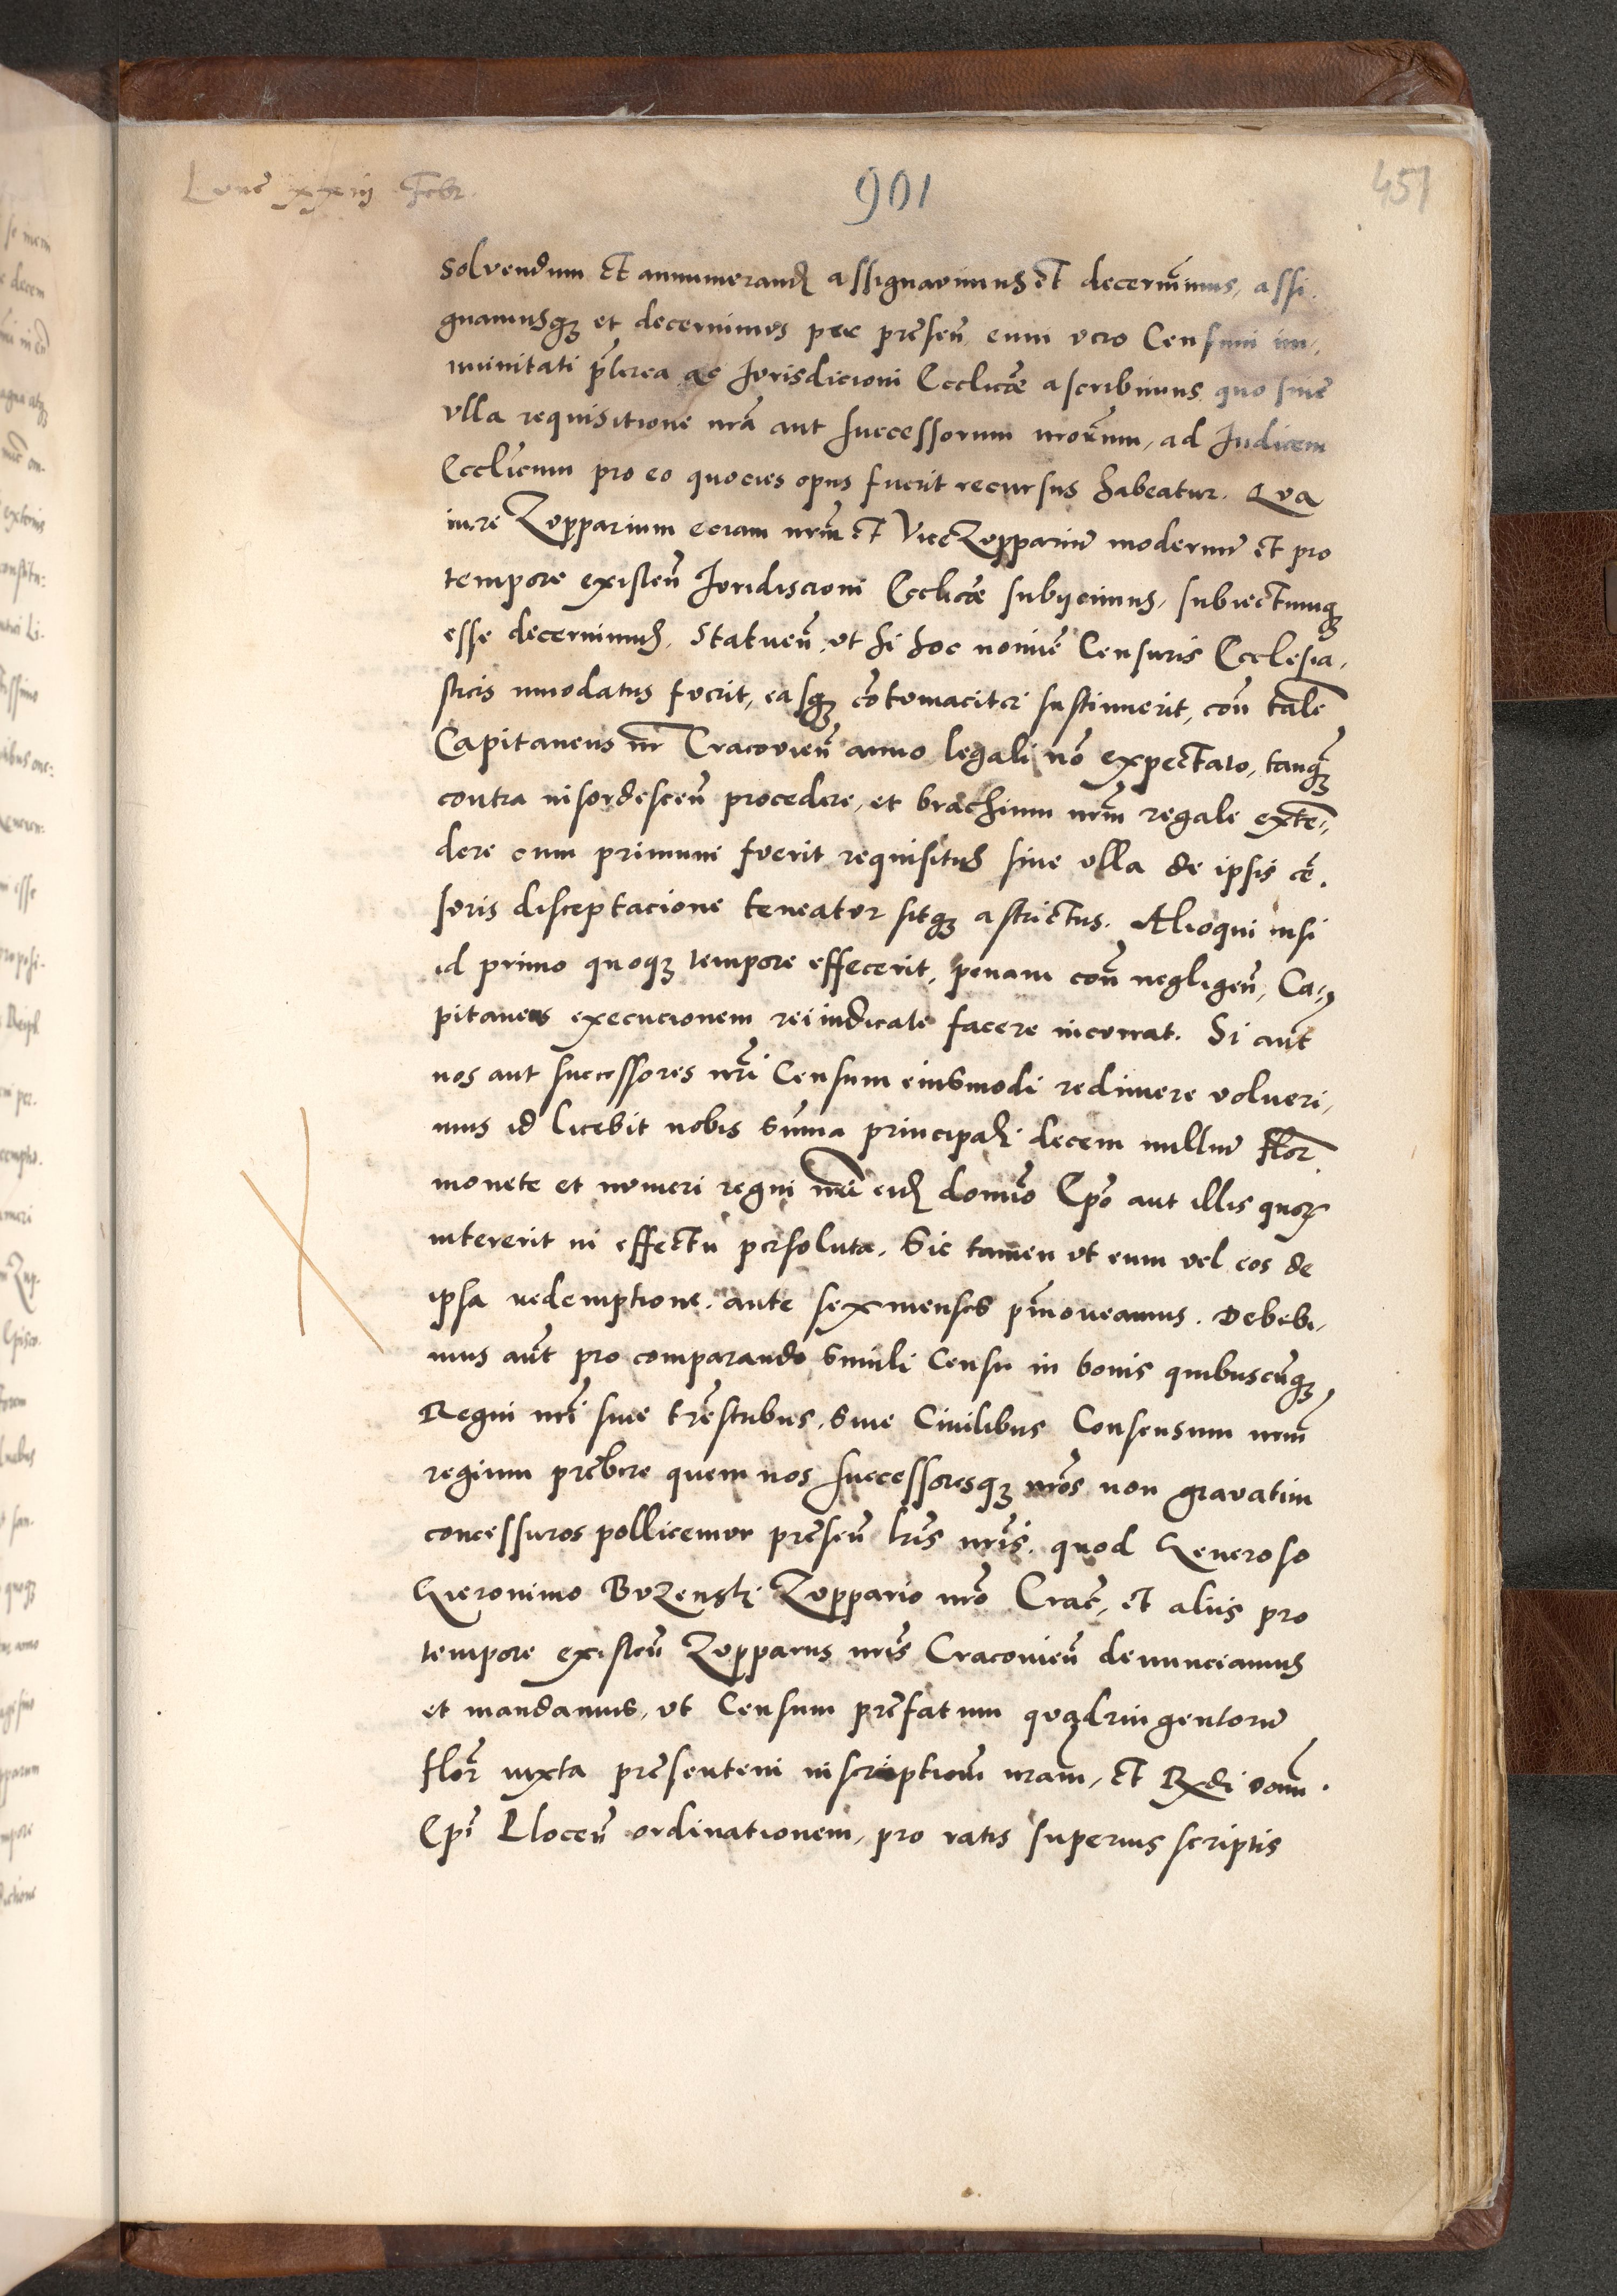 Lune xxiij Febr.
901
451
solvendum et annumerand assignavimus et decernimus, assi
gnamusq3 et decernimus per presen̄, eum vero Censum im,
munitati preterea ac Jurisdicioni Eccl̄ice ascribimus, quo sine
vlla requisitione nrā aut successorum nrorum, ad Judicem
Eccl̄icum pro eo quocies opus fuerit recursus habeatur. Qua
in re Zupparium eciam nrm̄ et ViceZuppariū modernū et pro
tempore existen̄ Juridiscioni Eccl̄ice subijcimus, subiectumq3
esse decernimus. Statuen̄, vt si hoc nomīe Censuris Ecclesia,
sticis innodatus fuerit, easq3 cōtumaciter sustinuerit, con̄ talē
Capitaneus nr̄ Cracovien̄ anno legali nō expectato, tanq̄3
contra insordescen̄ procedere, et brachium nrm̄ regale extē,
dere cum primum fuerit requisitus sine vlla de ipsis cē,
suris disceptacione teneatur sitq3 astrictus. Alioqui nisi
id primo quoq3 tempore effecerit, penam con̄ negligen̄, Ca,
pitaneos execucionem rei iudicate facere incurrat. Si aut̄
nos aut successores nrī Censum eiusmodi redimere volueri,
mus id licebit nobis sūma principali decem milliū flor̄
monete et numeri regni nrī eid domīo Ep̄o aut illis quor
intererit in effectu persoluta. Sic tamen vt eum vel eos de
ipsa redemptione, ante sex menses p̄moneamus. Debebi,
mus aut̄ pro comparando simili Censu in bonis quibuscūq3
Regni nrī sive trēstribus, sive Civilibus Consensum nrm̄
regium prebere quem nos successoresq3 nrōs non gravatim
concessuros pollicemur presen̄ lrīs nrīs. quod Generoso
Hieronimo Buzenski Zuppario nrō Crac̄, et aliis pro
tempore existen̄ Zuppariis nrīs Cracovien̄ denunciamus
et mandamus, vt Censum prefatum quadringentorū
flor̄ iuxta presentem inscriptiōm nram̄, et Rxdi dom̄
Ep̄i Plocen̄ ordinationem, pro ratis superius scriptis